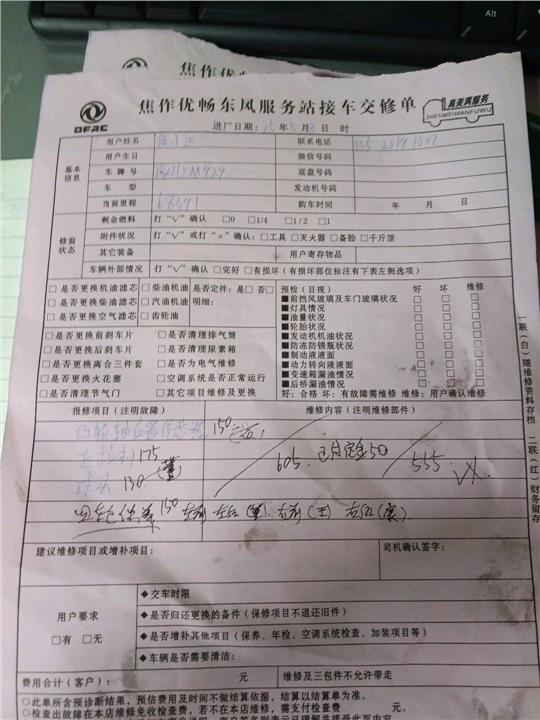 Alt
焦作优畅
焦作优畅东风服务站接车交修单
DFAC
真美满服务
ZHENMEIMANFUWU
进厂日期：25年5月8日 时
基本信息
用户姓名 联系电话
用户生日 微信号码
车牌号 底盘号码
车型 发动机号码
当前里程 68391 购车时间 年 月 日
修前状态
剩余燃料 打“√”确认 □0 □1/4 □1/2 □1
附件状况 打“√”或打“×”确认：□工具 □灭火器 □备胎 □千斤顶
其它装备 用户寄存物品
车辆外部情况 打“√”确认 □完好 □有损坏（有损坏部位标注有下表左侧选项）
□是否更换机油滤芯 □柴油机油 是否定件：是□否□
□是否更换柴油滤芯 □汽油机油 明细：
□是否更换空气滤芯 □齿轮油
□是否更换前刹车片 □是否清理排气筒
□是否更换后刹车片 □是否清理尿素箱
□是否更换离合三件套 □是否为电气维修
□是否更换火花塞 □空调系统是否正常运行
□是否清理节气门 □其它项目维修及更换
预检（目视） 好 坏 维修
■前挡风玻璃及车门玻璃状况
■灯具情况
■油量状况
■轮胎状况
■发动机机油状况
■防冻防锈瓶状况
■制动液液面
■动力转向液液面
■变速箱漏油情况
■后桥漏油情况
好：合格 坏：有故障需维修 维修：用户确认维修
报修项目（注明故障） 维修内容（注明维修部件）
150
175
球头 130
605. 已付定金50 555
150 左前 左后
建议维修项目或增补项目： 司机确认签字：
用户要求
□有 □无
◆交车时限
◆是否归还更换的备件（保修项目不退还旧件）
◆是否增补其他项目（保养、年检、空调系统检查、加装项目等）
◆车辆是否需要清洁：
费用合计（客户）： 元 维修及三包件不允许带走
○此单所含预诊断结果，预估费用及时间不做结算依据，结算以结算单为准。
○检查出故障在本店维修免收检查费，若不在本店维修，需支付检查费 元。
一联（白）随维修资料存档 二联（红）财务留存